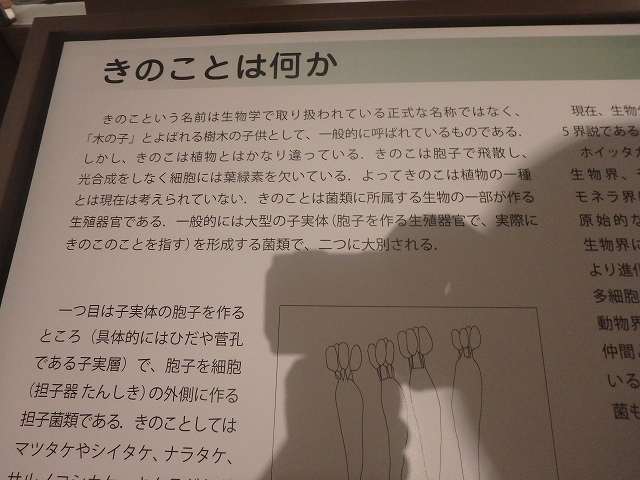 きのことは何か
きのこという名前は生物学で取り扱われている正式な名称ではなく、
「木の子」とよばれる樹木の子供として、一般的に呼ばれているものである．
しかし、きのこは植物とはかなり違っている．きのこは胞子で飛散し、
光合成をしなく細胞には葉緑素を欠いている．よってきのこは植物の一種
とは現在は考えられていない．きのことは菌類に所属する生物の一部が作る
生殖器官である．一般的には大型の子実体（胞子を作る生殖器官で、実際に
きのこのことを指す）を形成する菌類で、二つに大別される．
一つ目は子実体の胞子を作る
ところ（具体的にはひだや菅孔
である子実層）で、胞子を細胞
（担子器 たんしき）の外側に作る
担子菌類である．きのことしては
マツタケやシイタケ、ナラタケ、
現在、生物
5界説である
ホイッタカ
生物界、
モネラ界
原始的な
生物界に
より進化
多細胞
動物界
仲間
いる
菌も